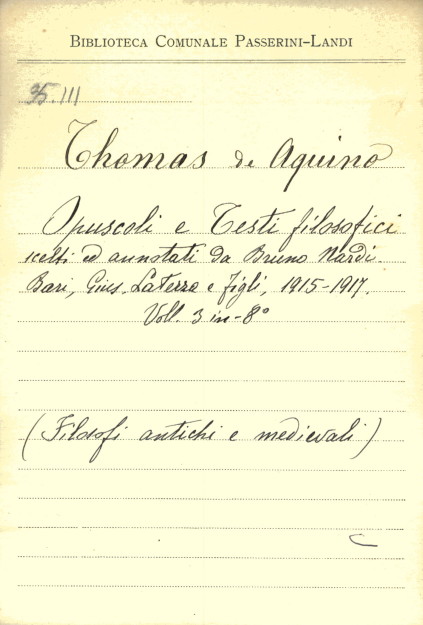 Biblioteca Comunale Passerini-Landi
35.III
Thomas de Aquino
Opuscoli e Testi filosofici
scelti ed annotati da Bruno Nardi.
Bari, Gius. Laterza e figli, 1915-1917.
Voll. 3 in-8°
(Filosofi antichi e medievali)